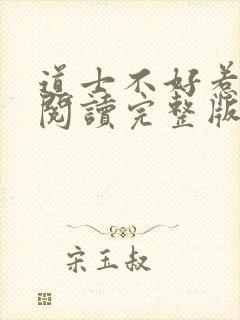 道士不好惹
閱讀完整版
宋玉叔